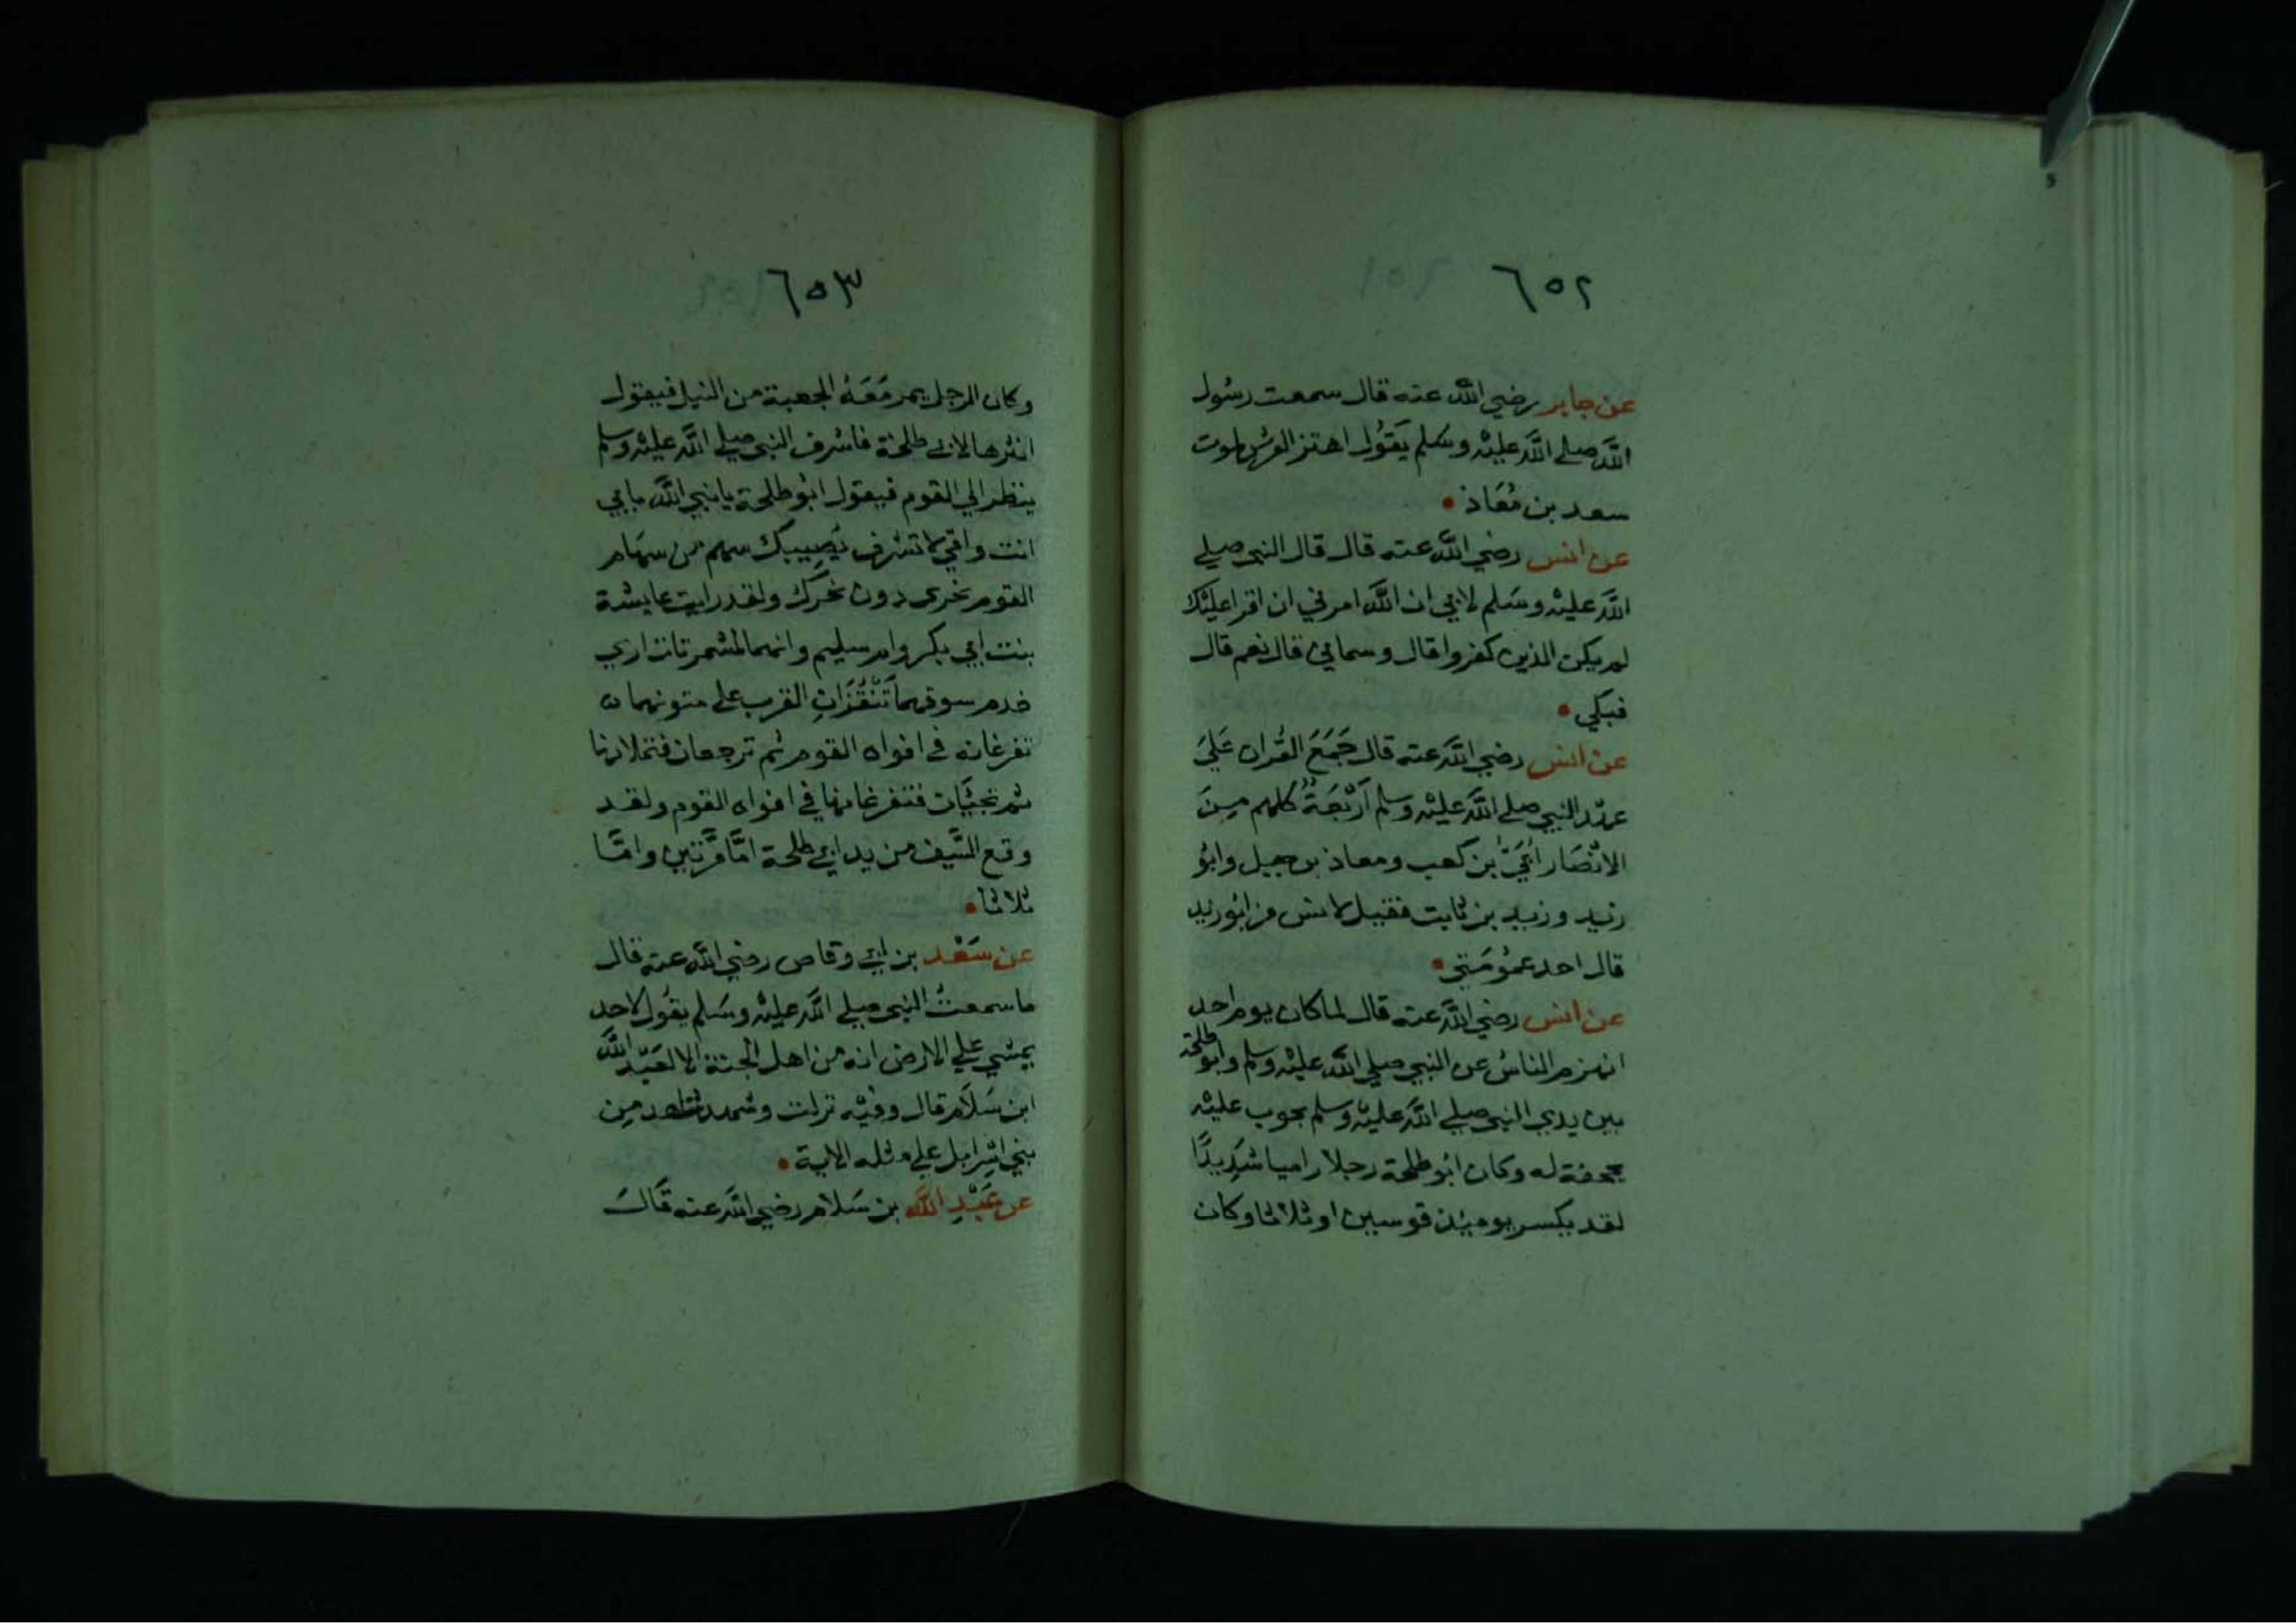 ٦٥٢
عن جابر رضي الله عنه قال سمعت رسول
الله صلي الله عليه وسلم يَقُول اهتز العرش لموت
سعد بن مُعَاذ
عن انس رضي الله عنه قال قال النبي صلي
الله عليه وسَلم لابي ان الله امرني ان اقرا عليْك
لم يكن الذين كفروا قال وسماني قال نعم قال
فبكي
عن انس رضي الله عنه قال جَمَعَ القُران عَلَيَ
عهد النبي صلي الله عليه وسلم اَرْبَعَةٌ كلهم مِنَ
الانْصَار اُبَيّ بن كعب ومعاذ بن جبل وابُو
زيد وزيد بن ثابت فقيل لانس من ابُو زيد
قال احد عمُومَتي
عن انس رضي الله عنه قال لما كان يوم احد
انهزم الناسُ عن النبي صلي الله عليه وسلم وابُو طلحة
بين يدي النبي صلي الله عليه وسلم مجوب عليْه
بحجفة له وكان ابُو طلحة رجلا راميا شَدِيدًا
لقد يكسر يومئذ قوسين او ثلاثا وكان
٦٥٣
وكان الرجل يمر مَعَهُ الجعبة من النبل فيقول
انثرها لابي طلحة فاشرف النبي صلي الله عليه وسلم
ينظر الي القوم فيقول ابُو طلحة يا نبي الله بابي
انت وامي لا تشرف يُصِيبك سهم من سهَام
القوم نحري دون نحرك ولقد رايت عايشة
بنت ابي بكر وام سليم وانهما لمشمرتان اري
خدم سوقهما تَنْقُزَانِ القرب علي متونهما ن
تفرغانه في افواه القوم ثم ترجعان فتملانها
ثم تجيَّان فتفرغانها في افواه القوم ولقد
وقع السَّيف من يد ابي طلحة امَّا مَرَّتين وامَّا
ثلاثا
عن سَعْد بن ابي وقاص رضي الله عنه قال
ما سمعتُ النبي صلي الله عليه وسَلم يقُول لاحد
يمشي علي الارض انه من اهل الجنة الا لعَبْد الله
ابن سَلَام قال وفيْه نزلت وشهد شاهد من
بني اسْرايل علي مثله الاية
عن عَبْدِ الله بن سَلام رضي الله عنه قَالَ